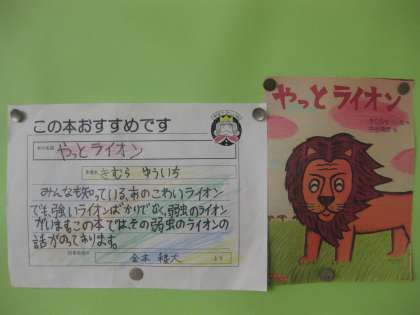 この本おすすめです
やっとライオン
きむら ゆういち
みんなも知っている、あのこわいライオン
でも、強いライオンばかりでなく、弱虫のライオン
がいます。この本では、その弱虫のライオンの
話がのっております。
より
やっとライオン